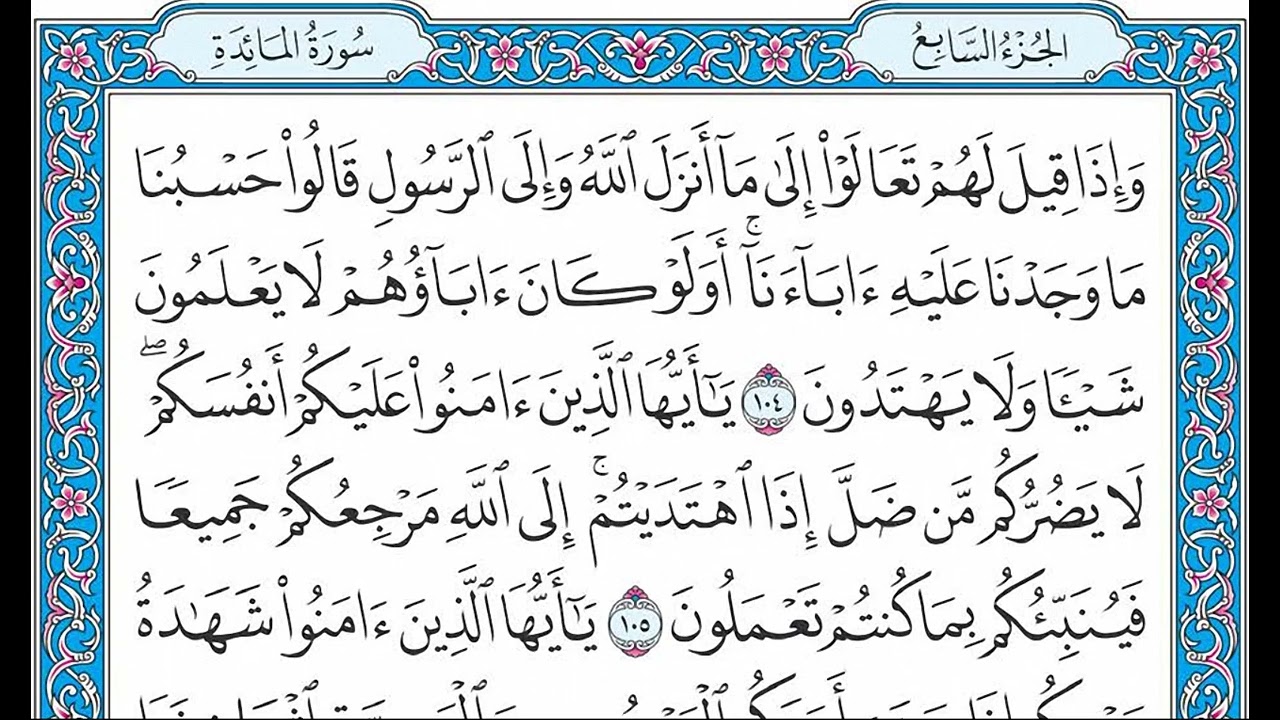 الجُزْءُ السَّابِعُ
سُورَةُ المَائِدَةِ
وَإِذَا قِيلَ لَهُمْ تَعَالَوْا۟ إِلَىٰ مَآ أَنزَلَ ٱللَّهُ وَإِلَى ٱلرَّسُولِ قَالُوا۟ حَسْبُنَا
مَا وَجَدْنَا عَلَيْهِ ءَابَآءَنَآ ۚ أَوَلَوْ كَانَ ءَابَآؤُهُمْ لَا يَعْلَمُونَ
شَيْـًٔا وَلَا يَهْتَدُونَ ١٠٤ يَـٰٓأَيُّهَا ٱلَّذِينَ ءَامَنُوا۟ عَلَيْكُمْ أَنفُسَكُمْ ۖ
لَا يَضُرُّكُم مَّن ضَلَّ إِذَا ٱهْتَدَيْتُمْ ۚ إِلَى ٱللَّهِ مَرْجِعُكُمْ جَمِيعًا
فَيُنَبِّئُكُم بِمَا كُنتُمْ تَعْمَلُونَ ١٠٥ يَـٰٓأَيُّهَا ٱلَّذِينَ ءَامَنُوا۟ شَهَـٰدَةُ